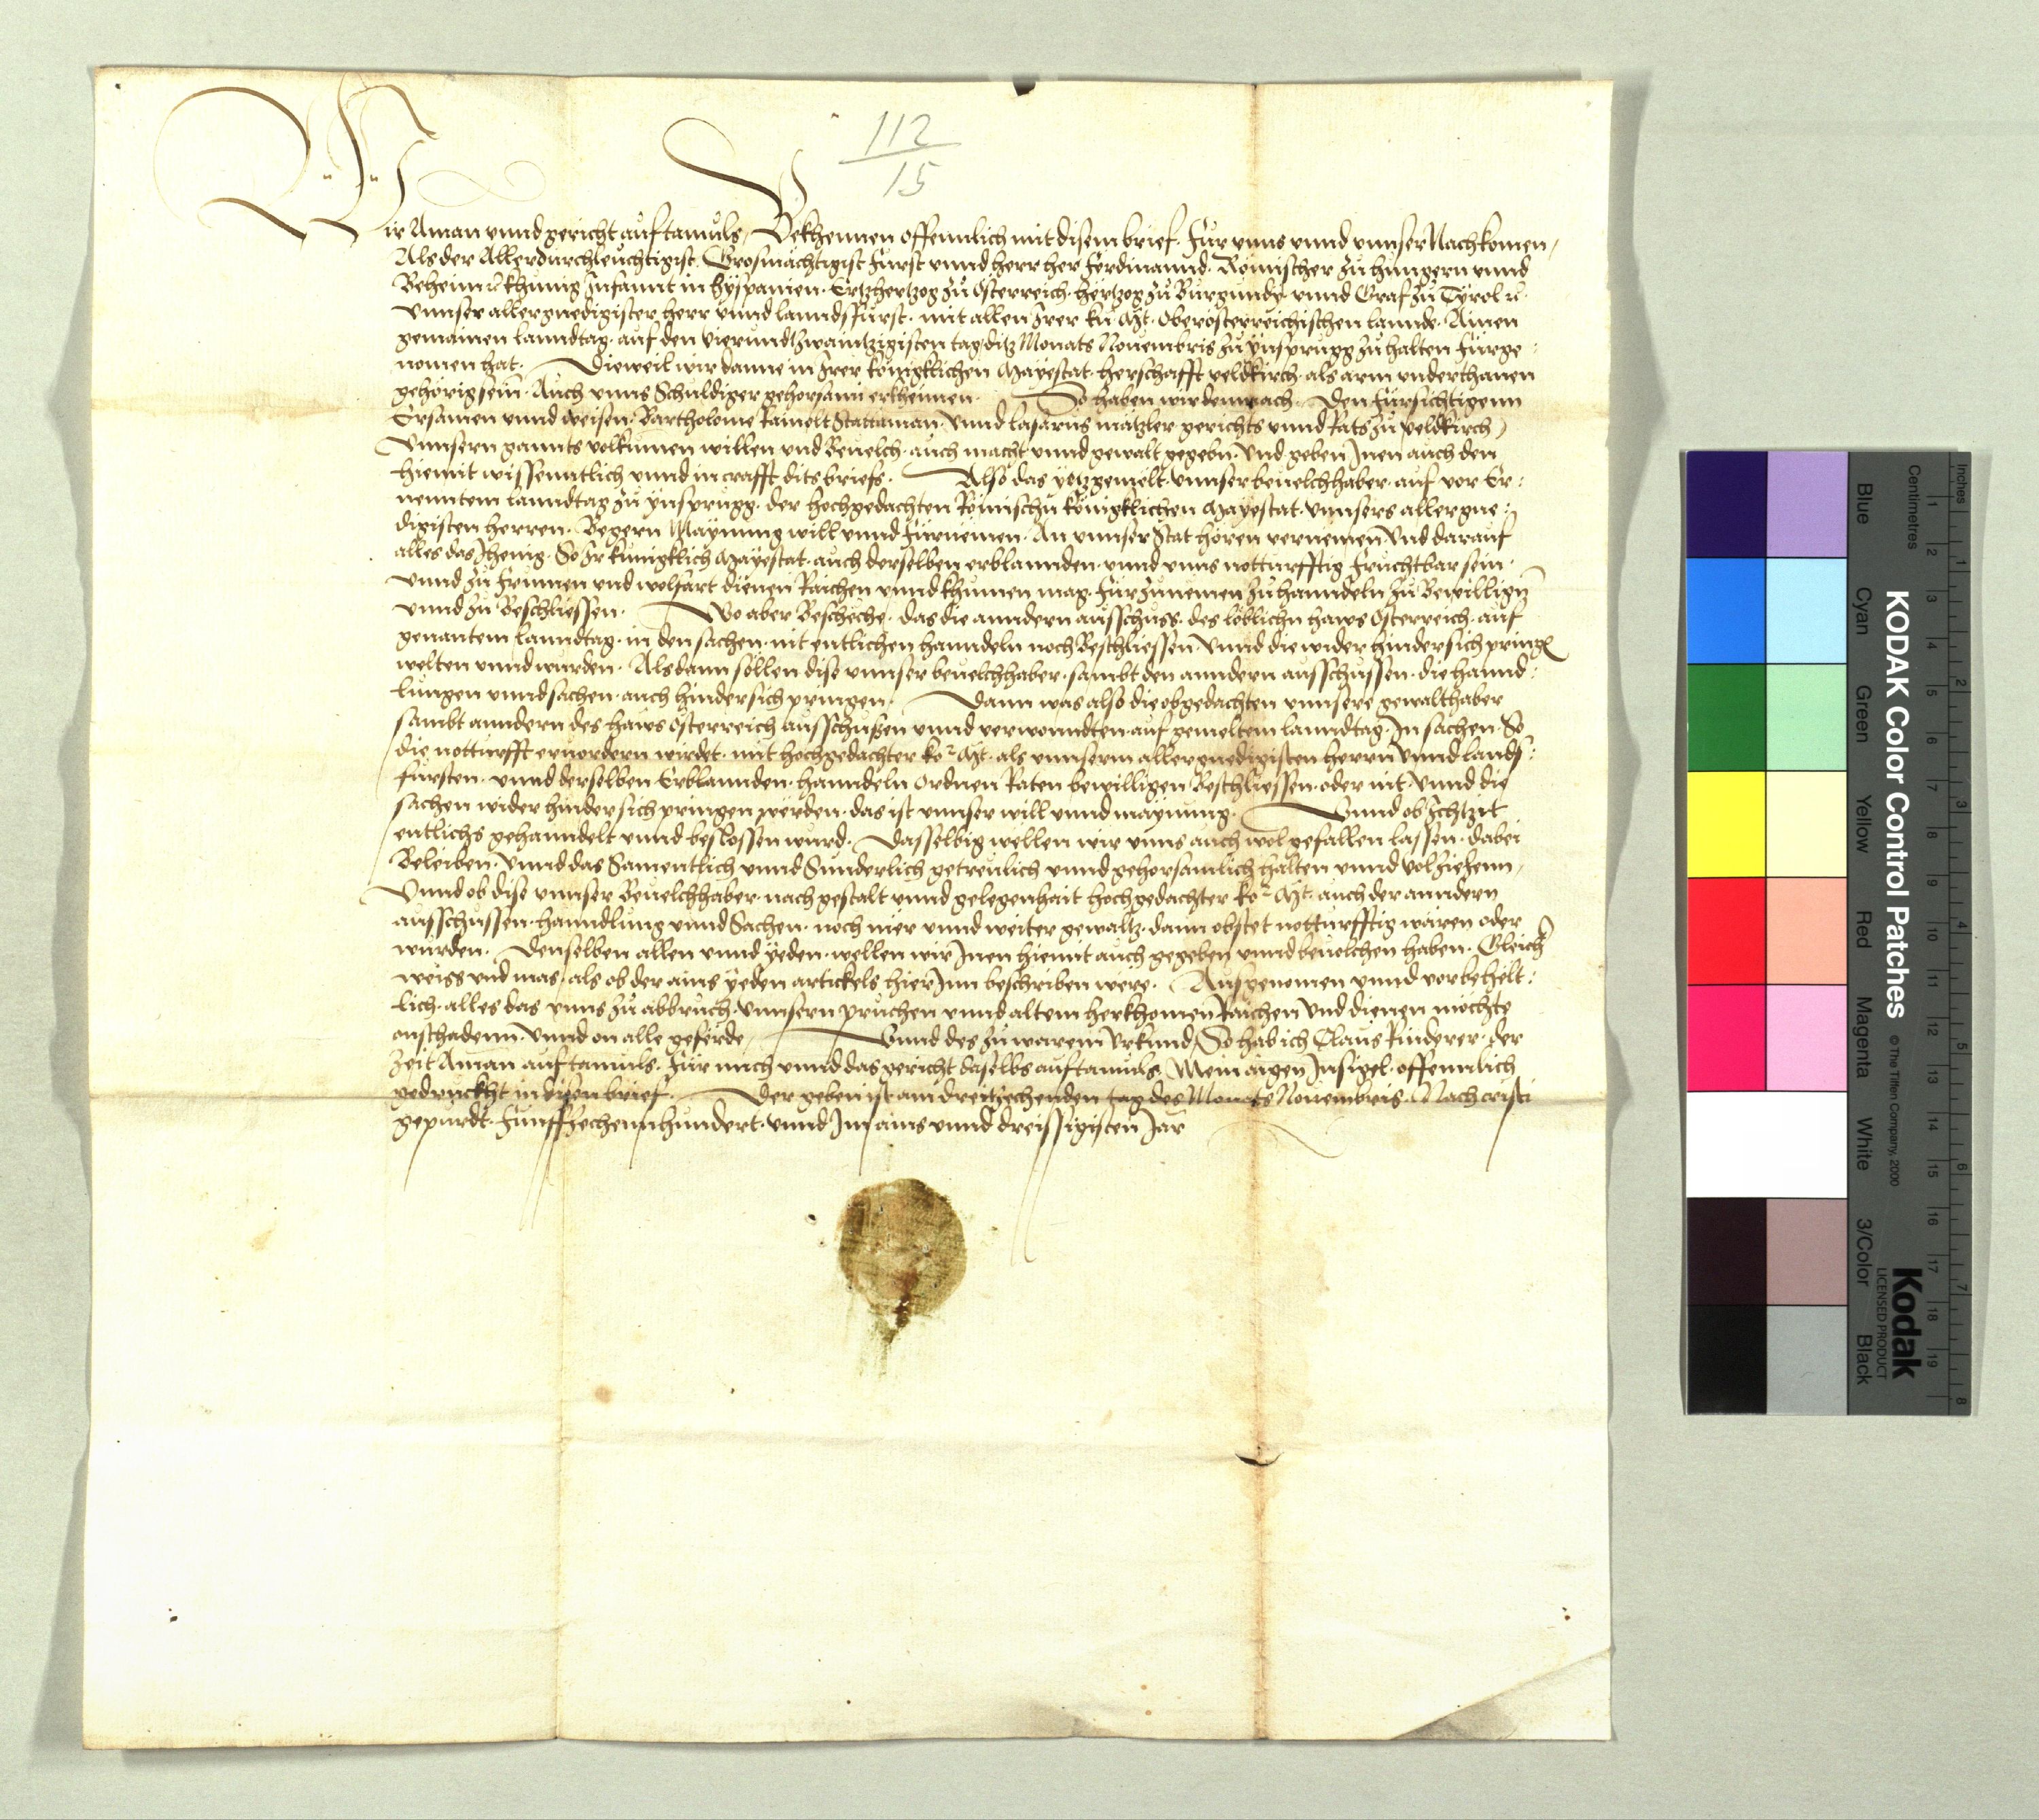 112
15
Wir Aman vnnd gericht auf tamuls, Bekhennen offennlich mit disem brief. Für vnns vnnd vnnser Nachkomen,
Als der Allerdurchleuchtigist. Grosmächtigist Fürst vnnd herr her Ferdinannd. Römischer zu hungern vnnd
Beheim rc khunig Infannt in hyspanien. Ertzhertzog zu Österreich. hertzog zu Burgundy. vnnd Graf zu Tyrol rc.
Vnnser allergnedigister herr vnnd lanndsfürst. mit allen Irer kn. Mt. Oberösterreichischen lannde. Ainen
gemainen lanndtag. auf den vierundzwaintzigisten tag ditz Monats Nouembris zu ynsprugg zu halten fürge=
nomen hat. Dieweil wir danne in Irer königklichen Mayestat. herschafft veldkirch. als arm vnderthanen
gehörig sein. Auch vnns Schuldiger gehorsami erkhennen. So haben wir demnach. Den fürsichtigenn
Ersamen vnnd weisen. Bartholome Rainolt Stattaman. Vnnd lasarus mätzler gerichts vnnd Rats zu veldkirch,
Vnnsern gannts volkumen willen vnd Beuelch. auch macht vnnd gewalt gegebn. Vnd geben Inen auch den
hiemit wissenntlich vnnd in crafft dits briefs. Also das yetz gemelt. vnnser beuelchhaber. auf vor Er=
nenntem lanndtag zu ynsprugg. der hochgedachten Römischn königklichen Mayestat. vnnsers allergne=
digisten herren. Begern Maynung will vnnd fürnemen. An vnnser Stat hören vernemen Vnd darauf
alles das Jhenig. So Ir kunigklich Mayestat. auch derselben erblannden. vnnd vnns notturfftig fruchtbar sein.
Vnnd zu frumen vnd wolfart dienen Raichen vnnd khumen mag. fürzunemen zu hanndeln zu Bewillign
vnnd zu Beschliessen. Wo aber Beschehe. das die anndern ausschuss. des löblichn haws Österreich. auf
genantem lanndtag. in den sachen. nit entlichen hanndeln noch Beschliessen. Vnnd die wider hindersich pringen
wolten vnnd wurden. Alsdann söllen dise vnnser beuelchhaber. sambt den anndern ausschussen. die hannd=
lungen vnnd sachen. auch hindersich pringen. Dann was also die obgedachten vnnsere gewalthaber
sambt anndern des haws österreich ausschußen vnnd verwonndten. auf gemeltem lanndtag. In sachen. So
die notturfft eruordern wirdet. mit hochgedachter kor. Mt. als vnnserm allergnedigisten herrn vnnd lannds=
fürsten. vnnd derselben Erblannden. hanndeln ordnen Raten bewilligen Beschliessen. oder nit. Vnnd die
sachen wider hindersich pringen werden. das ist vnnser will vnnd maynung. Vnnd ob Ichtzit
entlichs gehanndelt vnnd beslossen wurd. Dasselbig wellen wir vnns auch wol gefallen lassen. dabei
Beleiben. Vnnd das Samentlich vnnd Sunderlich getreulich vnnd gehorsamlich halten vnnd volziehenn,
Vnnd ob dise vnnser Beuelchhaber. nach gestalt vnnd gelegenhait hochgedachter kor. Mt. auch der anndern
ausschussen. hanndlung vnnd Sachen. noch mer vnnd weiter gewaltz. dann obstet notturfftig wären oder
wurden. Denselben allen vnnd yeden. wellen wir Inen hiemit auch gegeben vnnd beuolchen haben. Gleich
weiss vnd mas. als ob der ains yeden artickels hier Inn beschriben were. Ausgenomen vnnd vorbehelt=
lich. alles das vnns zu abbruch. vnnsern pruchen vnnd altem herkhomen Raichen vnd dienen möchte
on schadenn. vnnd on alle geferde, Vnnd des zu warem Vrkund, So hab ich Claus Rinderer. der
Zeit Aman auf tamuls. Für mich vnnd das gericht daselbs auf tamuls. Mein aigen Insigel. offennlich
gedruckht in disen brief. Der geben ist am dreitzechenden tag des Monats Nouembris. Nach cristi
gepurdt. Funffzechennhundert. vnnd Im ains vnnd dreissigisten Jar
KODAK Color Control Patches
© The Tiffen Company, 2000
Kodak
LICENSED PRODUCT
Blue
Cyan
Green
Yellow
Red
Magenta
White
3/Color
Black
Inches
Centimetres
1 2 3 4 5 6 7 8
1 2 3 4 5 6 7 8 9 10 11 12 13 14 15 16 17 18 19